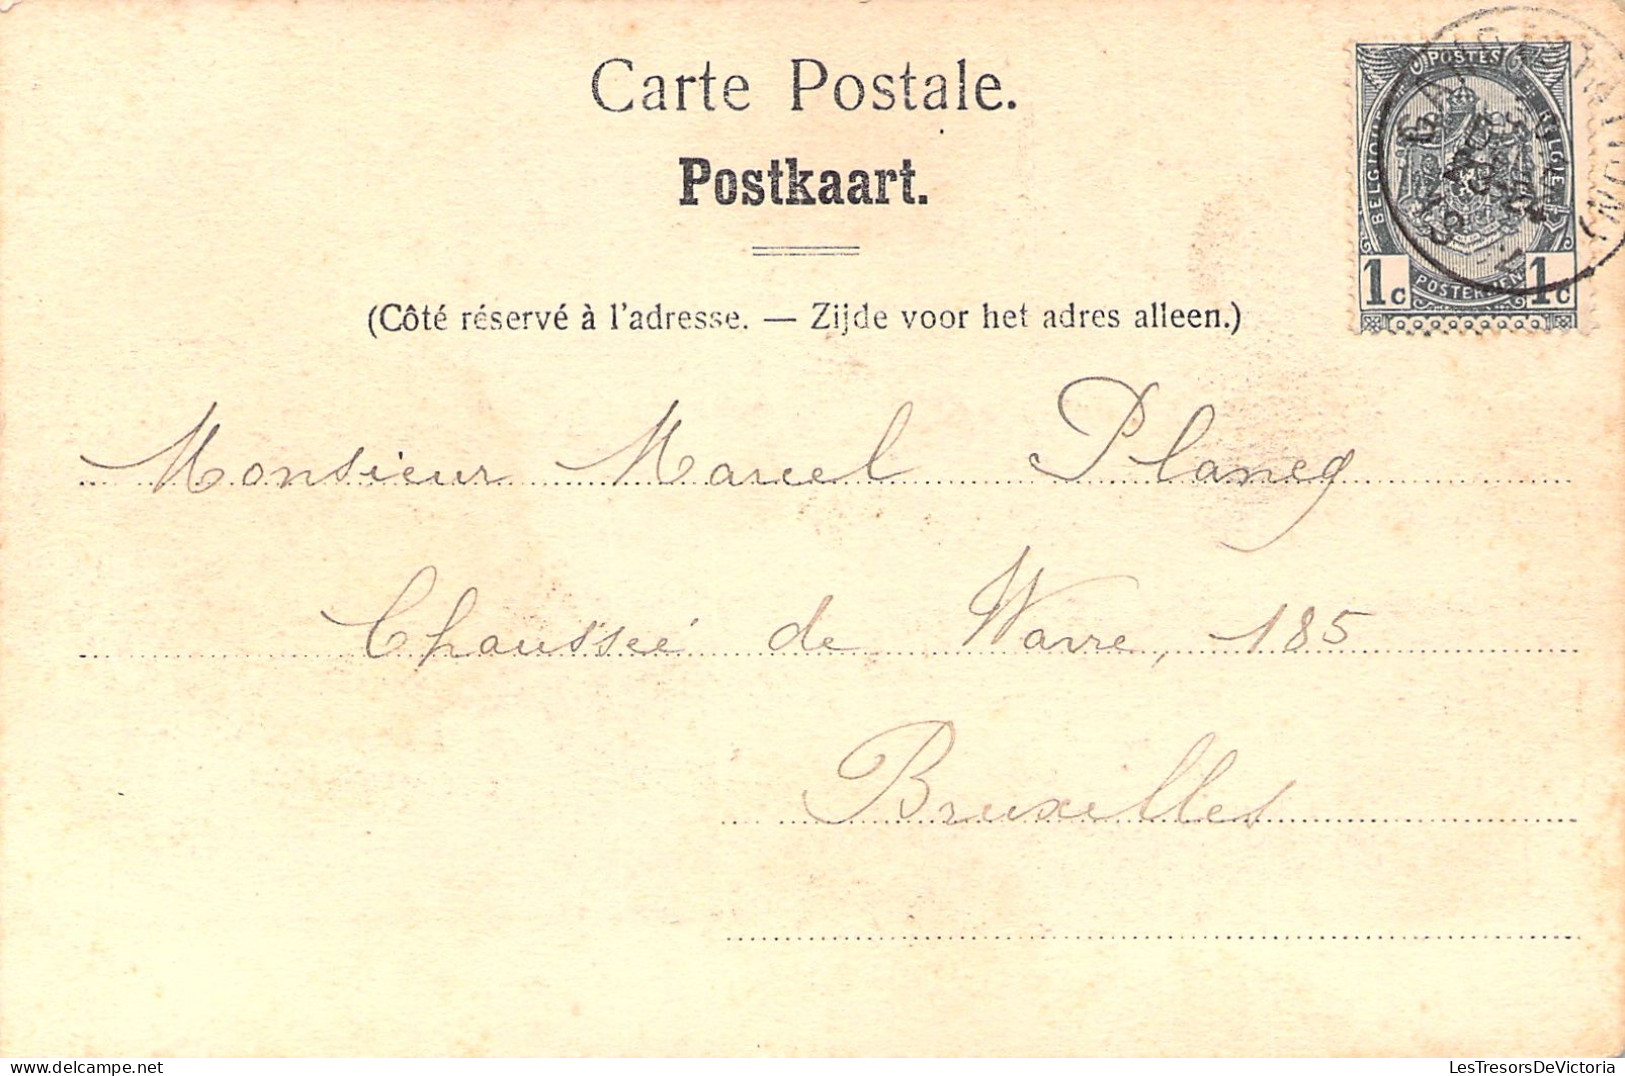 Carte Postale.
Postkaart.
(Côté réservé à l'adresse. — Zijde voor het adres alleen.)
POSTES
BELGIQUE BELGIE
1c POSTERIJEN 1c
Monsieur Marcel Planeg
Chaussée de Wavre, 185
Bruxelles
LesTresorsDeVictoria